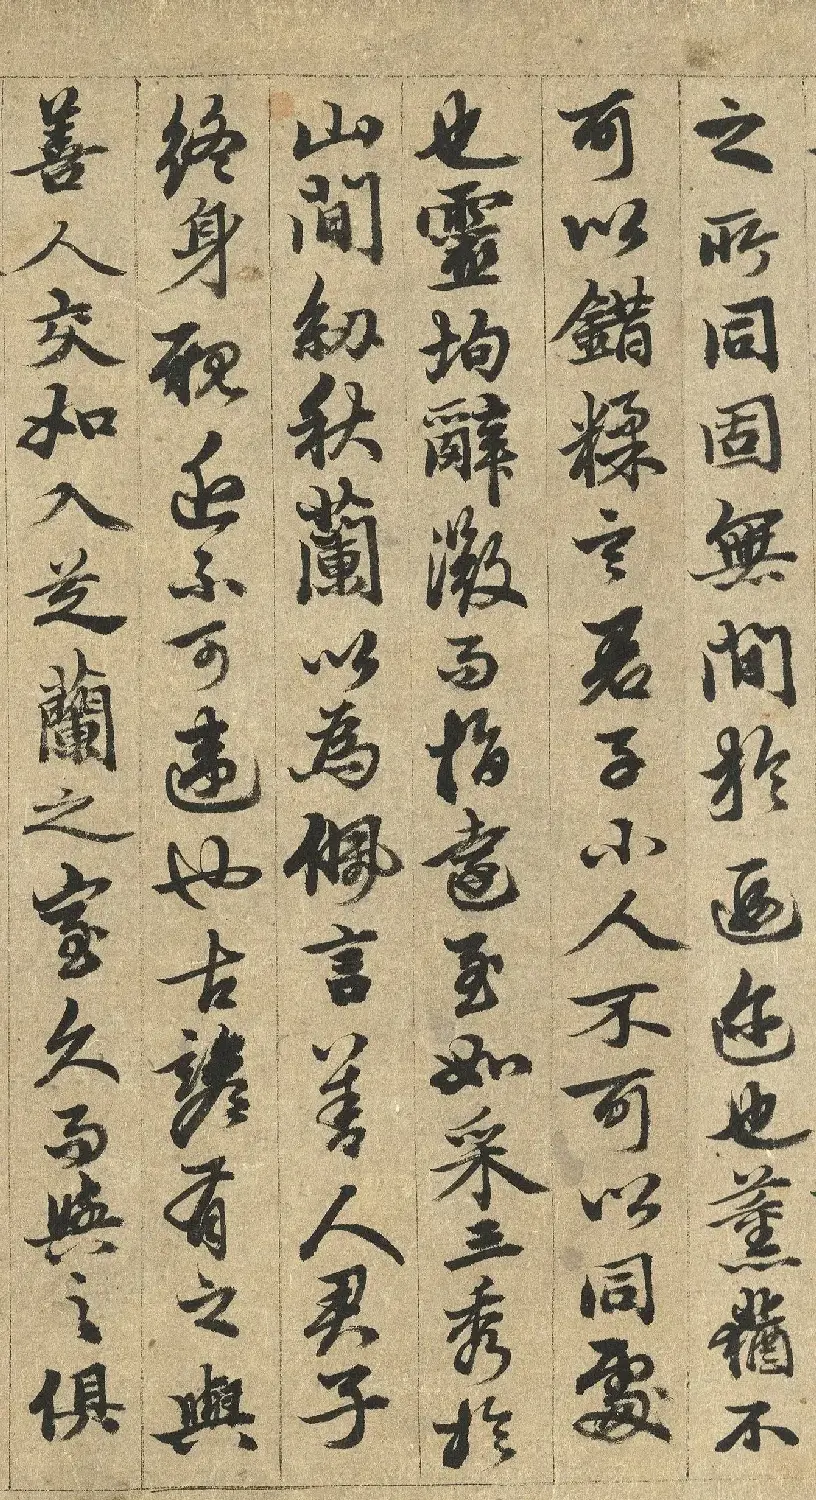 之所同固無間於遐迩也薰蕕不
可以錯糅言君子小人不可以同處
也靈均辭潋而指遠至如采三秀於
山間紉秋蘭以為佩言善人君子
終身親近不可違也古諺有之與
善人交如入芝蘭之室久而與之俱